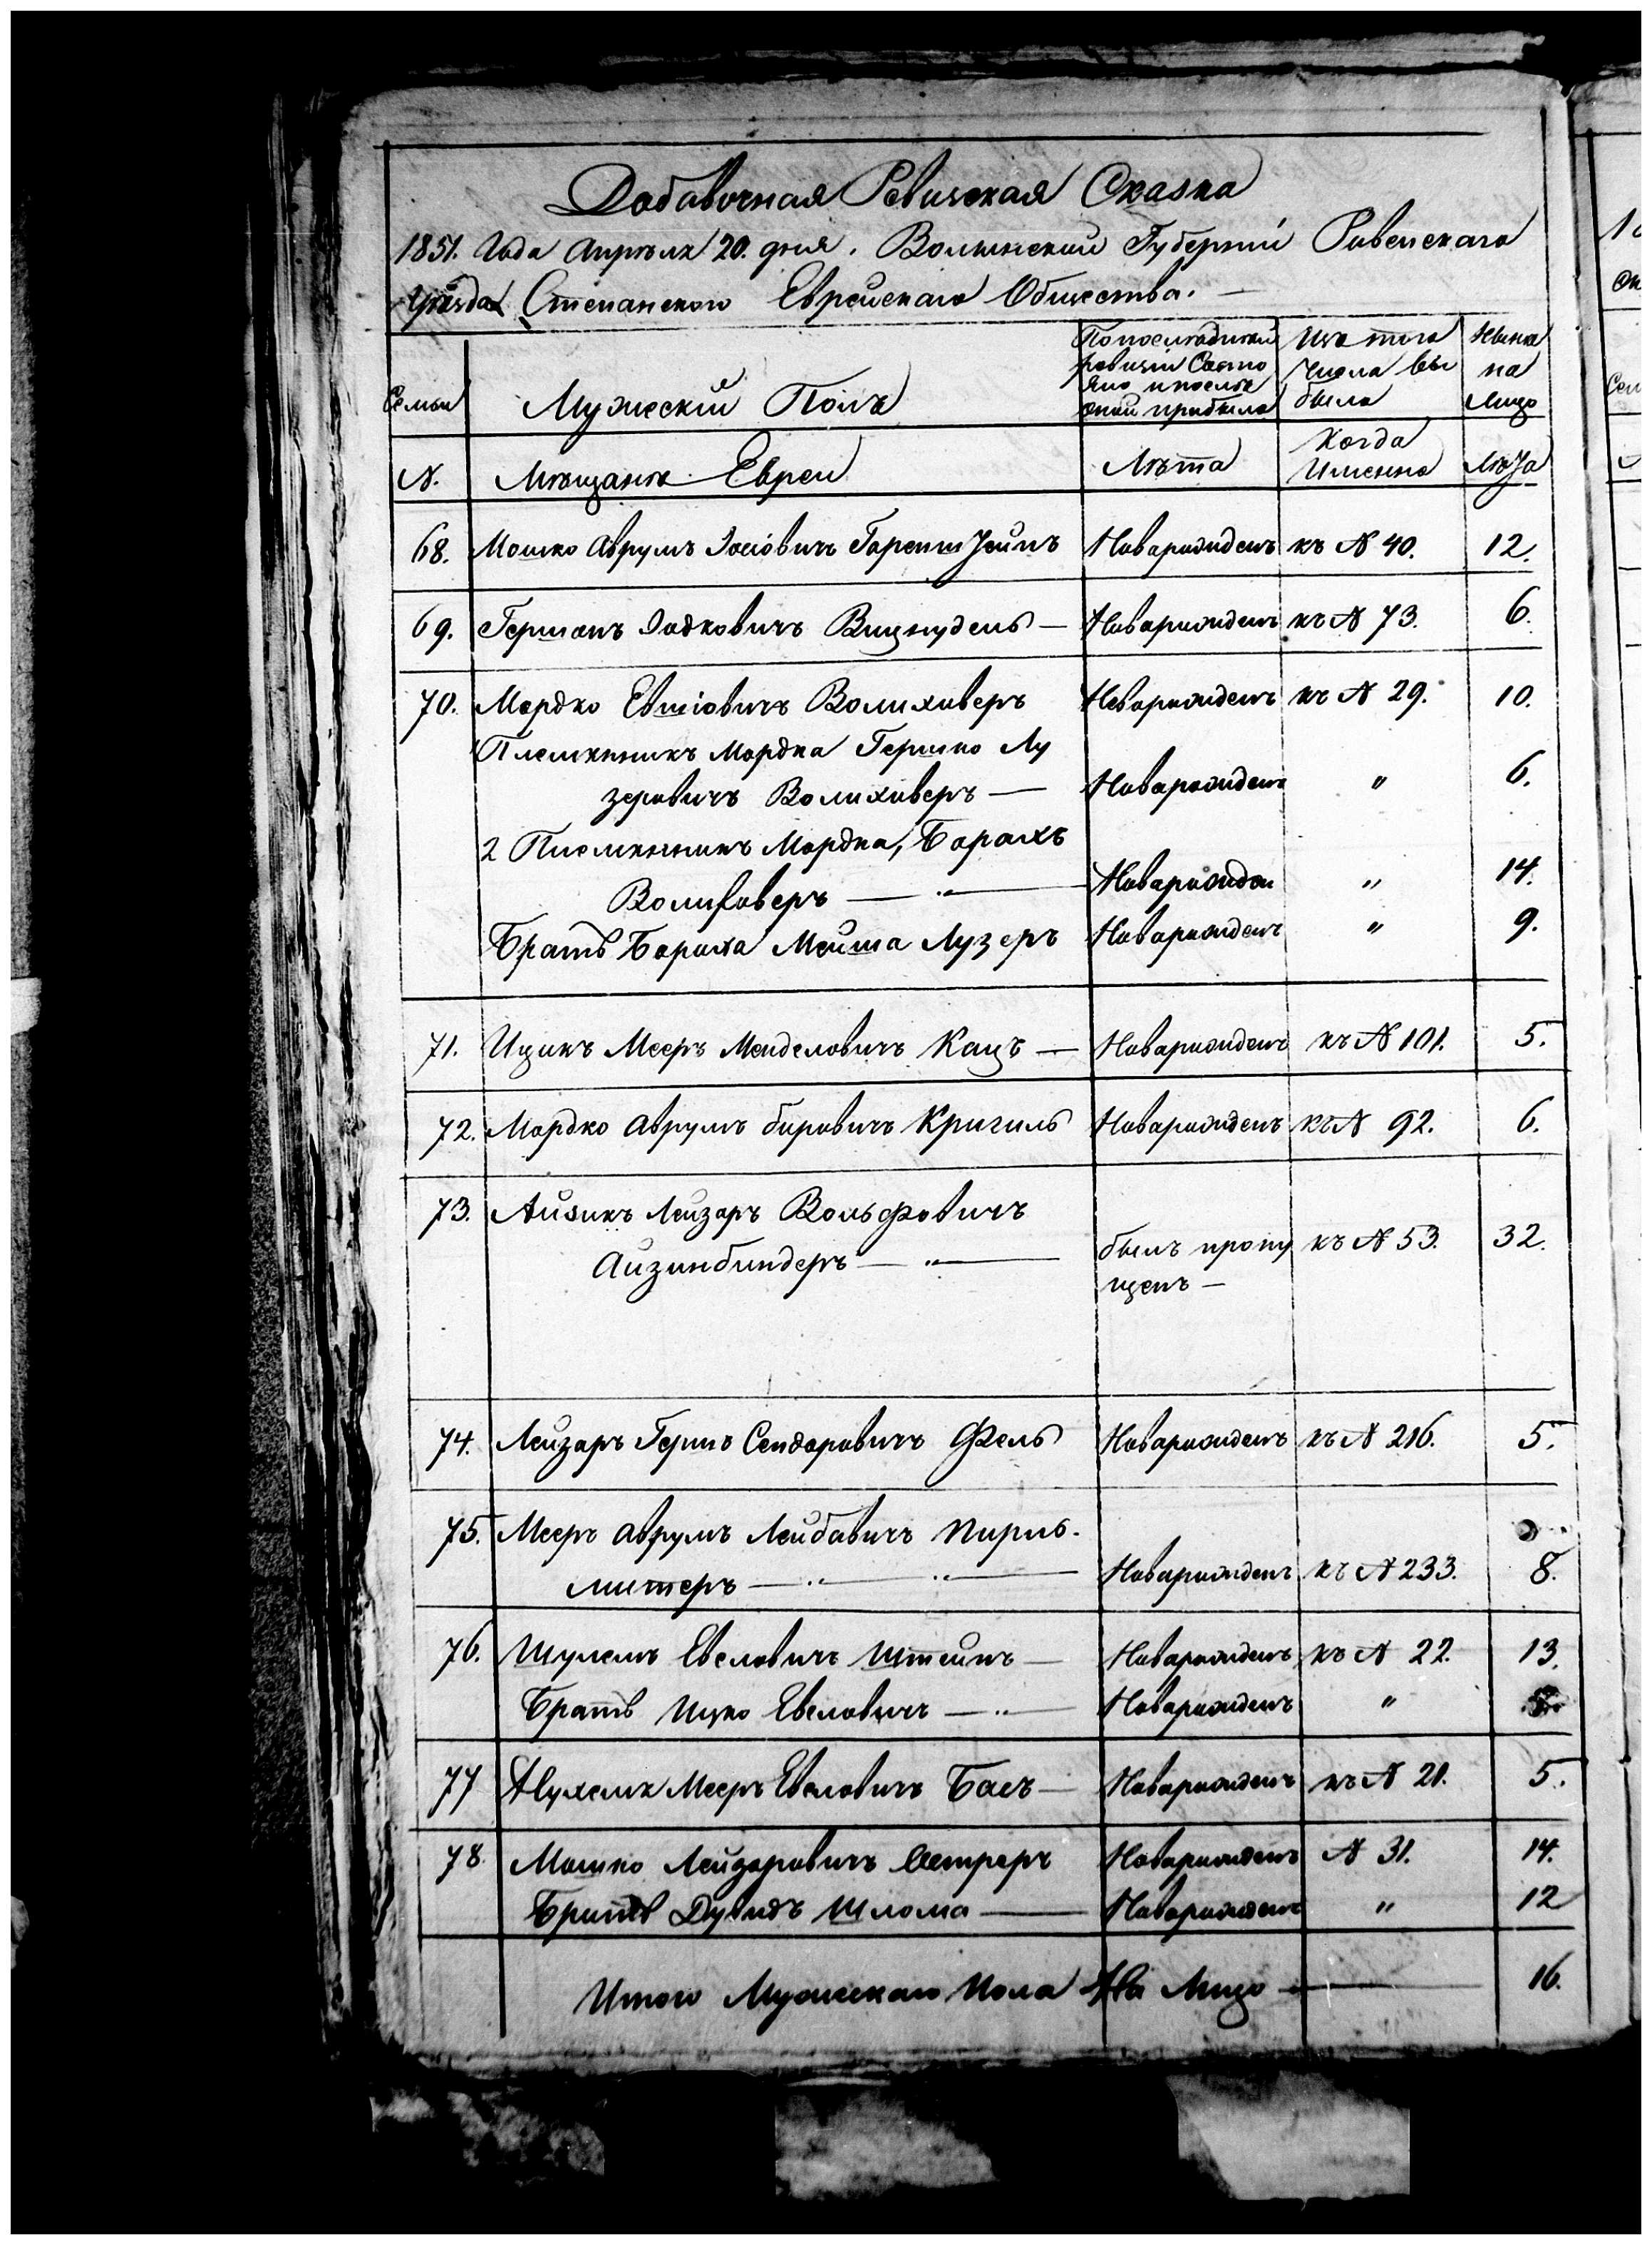 Добавочная Ревизская Сказка
1851. Года Апрѣля 20. дня. Волынской Губерніи Ровенскаго
Уѣзда Степанского Еврейскаго Общества. —
Семьи
Мужескій Полъ
По последней
ревизіи Состо
яло и после
оной прибыло
Изъ того
Числа вы
было
Ныне
на
Лицо
N.
Мѣщане Евреи
Лѣта
Когда
Именно
Лѣта
68. Мошко Аврумъ Іосіовичъ Горенштейнъ Наварожденъ къ N 40. 12.
69. Гершонъ Іодковичъ Вицнудель — Наварожденъ къ N 73. 6.
70. Мордко Евшіовичъ Волиховеръ Наварожденъ къ N 29. 10.
Племянникъ Мордка Гершко Лу
зеровичъ Волиховеръ — Наварожденъ " 6.
2 Племянникъ Мордка, Борохъ
Волиховеръ — " — Наварожден " 14.
Братъ Бороха Мойша Лузеръ Наварожденъ " 9.
71. Ицикъ Мееръ Менделовичъ Кацъ — Наварожденъ къ N 101. 5.
72. Мордко Аврумъ Беровичъ Кригиль Наварожденъ къ N 92. 6.
73. Айзикъ Лейзаръ Вольфовичъ
Айзинбиндеръ — " — былъ пропу къ N 53. 32.
щенъ —
74. Лейзаръ Гершъ Сендоровичъ Фель Наварожденъ къ N 216. 5.
75. Мееръ Аврумъ Лейбавичъ Пирль-
митеръ — " — " — Наварожденъ къ N 233. 8.
76. Шулемъ Евеловичъ Штейнъ — Наварожденъ къ N 22. 13.
Братъ Ицко Евеловичъ — " — Наварожденъ "
77 Нухемя Мееръ Евеловичъ Басъ — Наварожденъ къ N 21. 5.
78. Мошко Лейзоровичъ Наварожденъ N 31. 14.
Братъ Дувидъ Шлома — Наварожденъ " 12
Итого Мужескаго Пола На Лицо — 16.